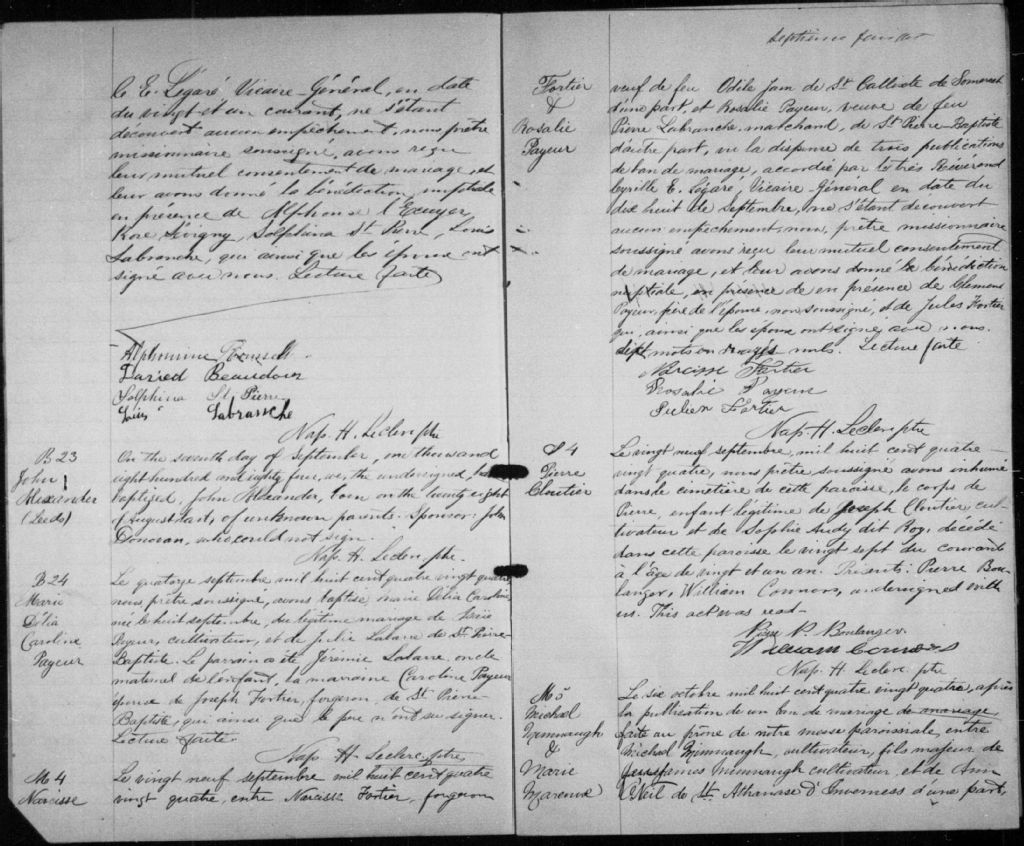 C. E. Légaré Vicaire-Général, en date
du vingt et un courant, ne s'étant
découvert aucun empêchement, nous prêtre
missionnaire soussigné, avons reçu
leur mutuel consentement de mariage, et
leur avons donné la bénédiction nuptiale
en présence de Alphonse l'Ecuyer,
Sévigny, Solphina St Pierre, Louis
Labranche, qui ainsi que les époux ont
signé avec nous. Lecture faite
Alphonsine
Beaudoin
Solphina St Pierre
Louis Labranche
Nap. H. Leclerc ptre
B 23
John
Alexander
(Leeds)
On the seventh day of September, one thousand
eight hundred and eighty four, we, the undersigned, have
baptized, John Alexander, born on the twenty eight
of August last, of unknown parents. Sponsor: John
Donovan, who could not sign.
Nap. H. Leclerc ptre.
B 24
Marie
Délia
Caroline
Payeur
Le quatorze septembre mil huit cent quatre vingt quatre
nous prêtre soussigné, avons baptisé marie Délia Caroline
née le huit septembre, du légitime mariage de Louis
Payeur, cultivateur, et de Julie Labarre de St Pierre-
Baptiste. Le parrain a été Jérémie Labarre oncle
maternel de l'enfant, la marraine Caroline Payeur
épouse de Joseph Fortier, forgeron, de St Pierre
Baptiste, qui ainsi que le père n'ont su signer.
Lecture faite.
Nap H Leclerc ptre
M 4
Narcisse
Le vingt neuf septembre mil huit cent quatre
vingt quatre, entre Narcisse Fortier, forgeron
Septième
Fortier
&
Rosalie
Payeur
veuf de feu Odile Jam de St Calixte de Somerset
d'une part, et Rosalie Payeur, veuve de feu
Pierre Labranche, marchand, de St Pierre-Baptiste
d'autre part, vu la dispense de trois publications
de ban de mariage, accordée par le très Révérend
Cyrille E. Légaré, Vicaire-Général en date du
dix huit de septembre, ne s'étant découvert
aucun empêchement, nous, prêtre missionnaire
soussigné avons reçu leur mutuel consentement
de mariage, et leur avons donné la bénédiction
nuptiale, en présence de en présence de Clement
Payeur, père de l'épouse, non soussigné, et de Jules Fortier
qui, ainsi que les époux ont signé avec nous.
Sept mots en rayés nuls. Lecture faite
Narcisse Fortier
Rosalie Payeur
Julien Fortier
Nap. H. Leclerc ptre
S 4
Pierre
Cloutier
Le vingt neuf septembre, mil huit cent quatre-
vingt quatre, nous prêtre soussigné avons inhumé
dans le cimetière de cette paroisse, le corps de
Pierre, enfant légitime de Joseph Cloutier cul-
tivateur et de Sophie Audy dit Roy, décédé
dans cette paroisse le vingt sept du courant
à l'âge de vingt et un an. Présents: Pierre Bou-
langer, William Connors, undersigned with
us. This act was read-
Pierre P. Boulanger
William Connors
Nap. H Leclerc ptre
M 5
Michael
Nimnaugh
&
Marie
Le six octobre mil huit cent quatre vingt quatre, après
la publication de un ban de mariage de mariage,
faite au prône de notre messe paroissiale, entre
Michael Nimnaugh, cultivateur, fils majeur de
James Nimnaugh cultivateur, et de Ann
O'Neil de St. Athanase d'Inverness d'une part,